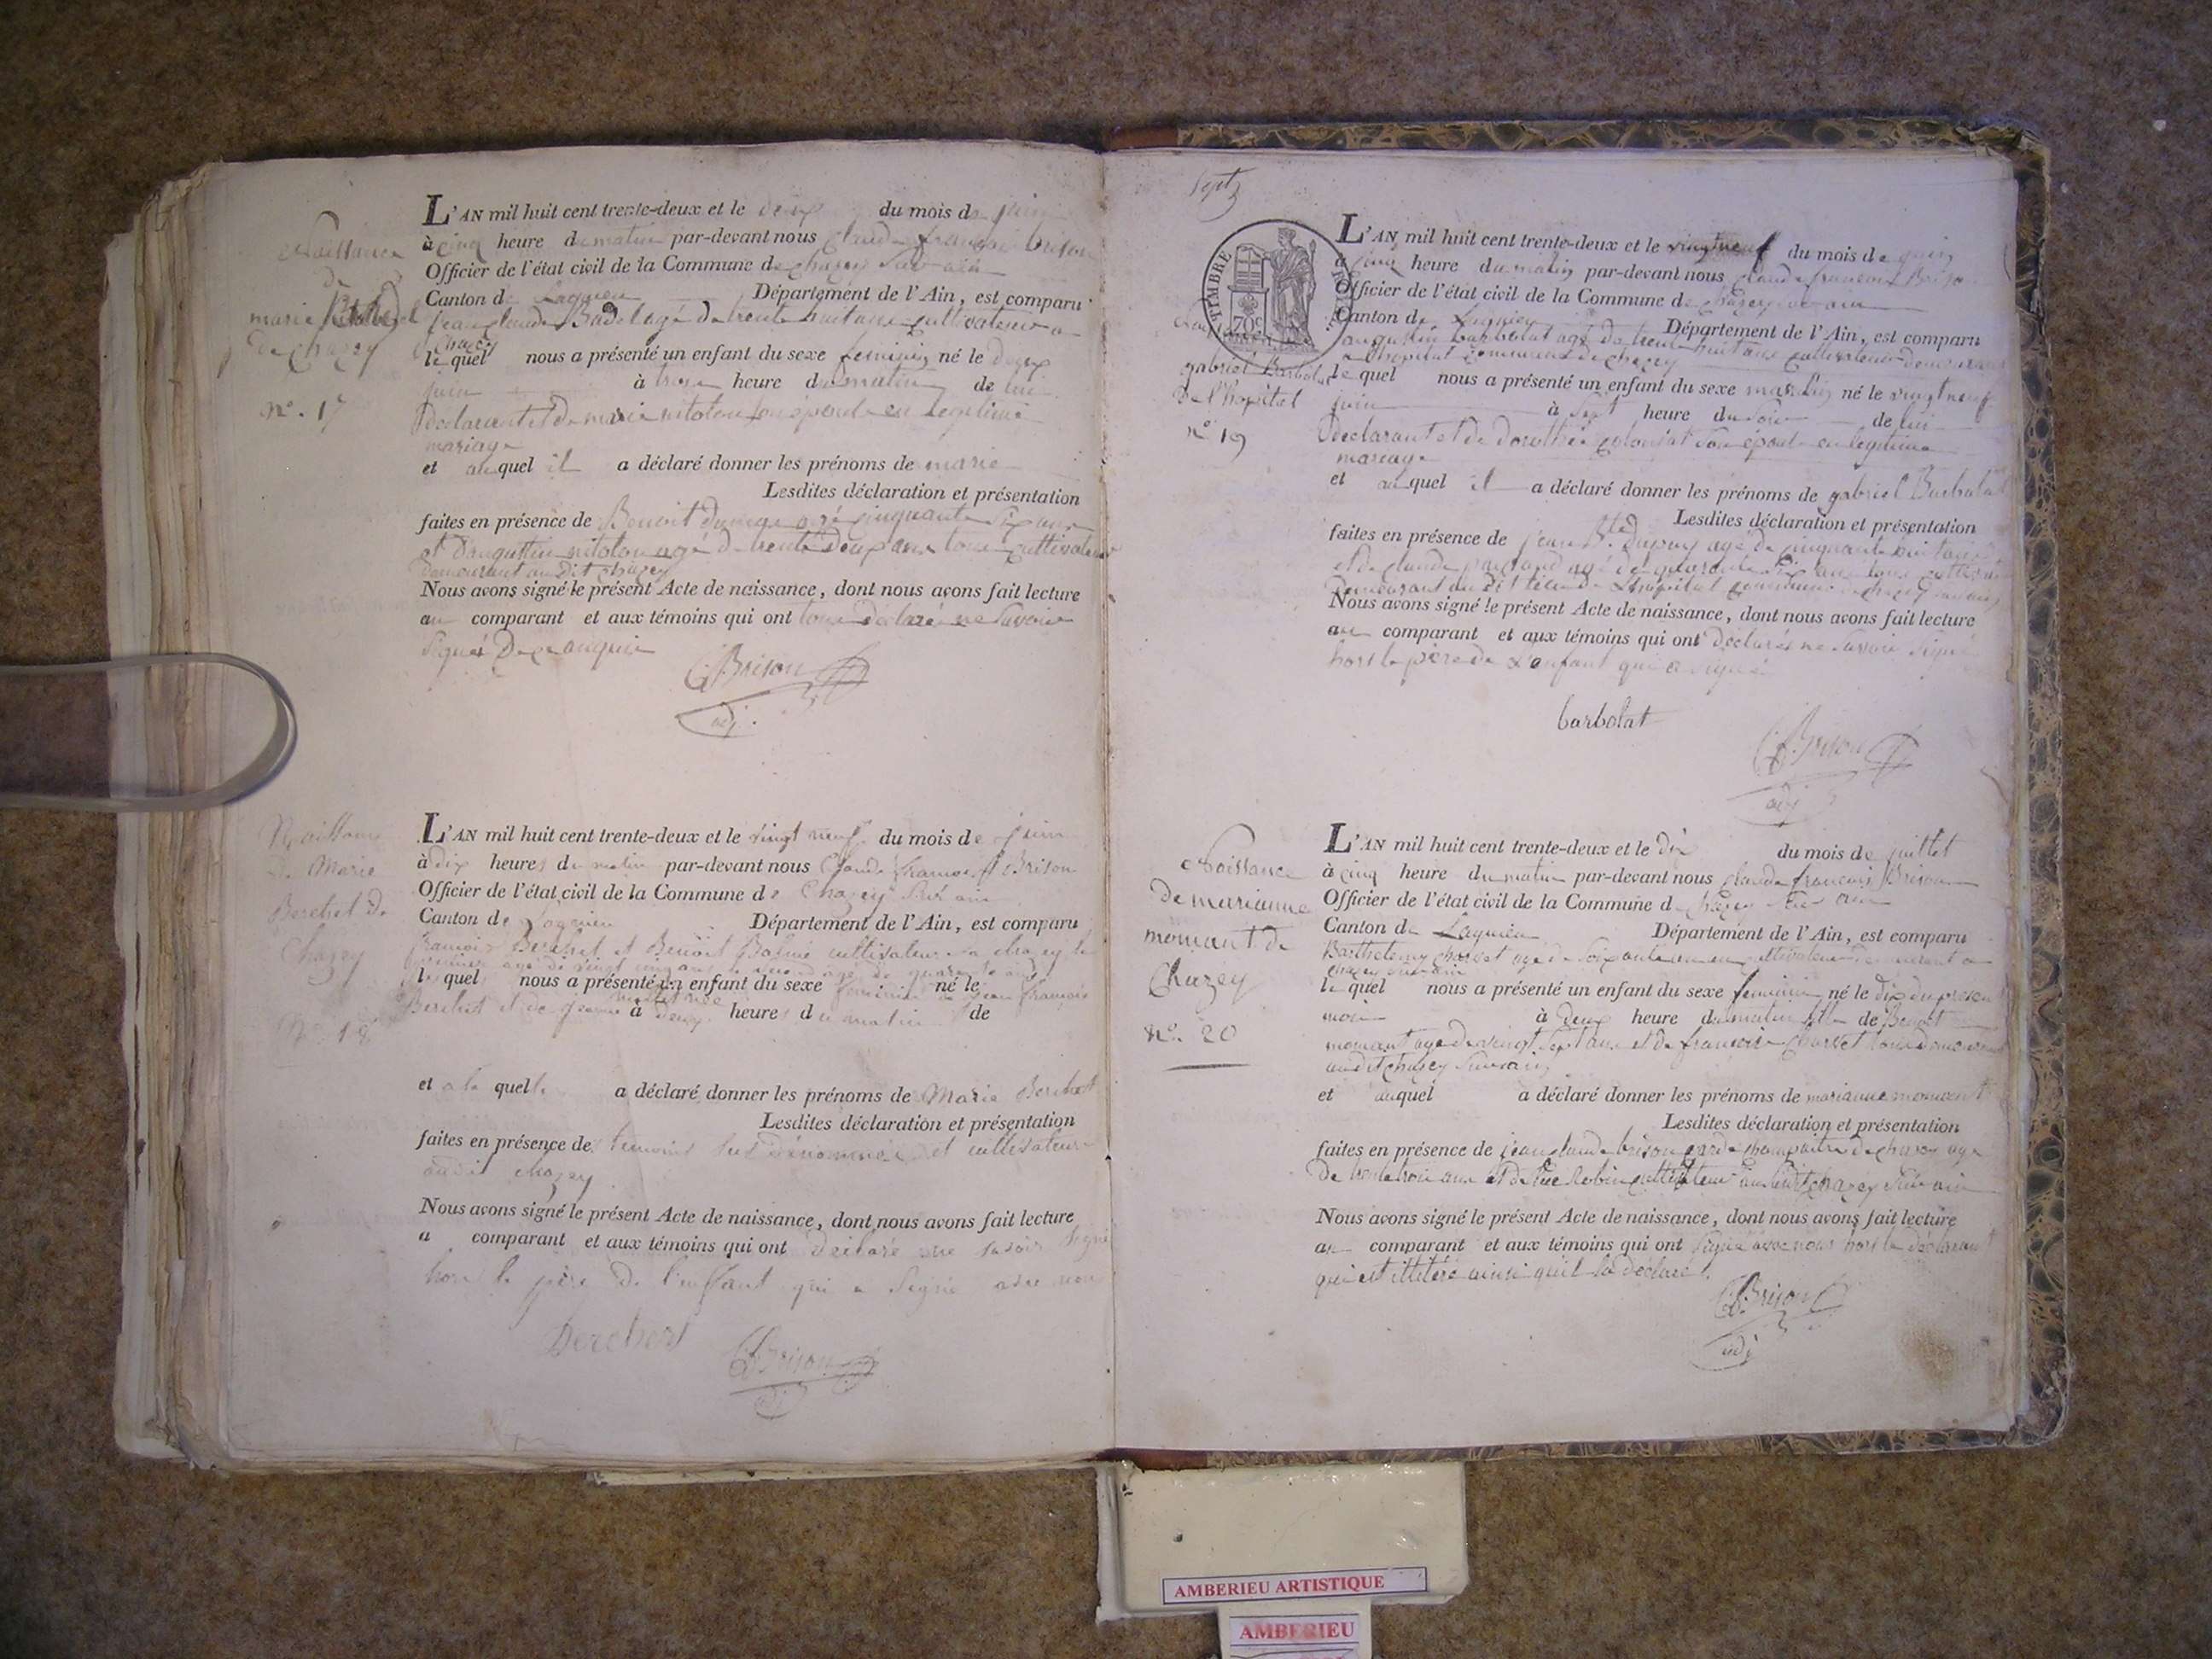 Naissance
de
marie
de chazey
n°. 17
L'AN mil huit cent trente-deux et le deux du mois de juin
à cinq heure du matin par-devant nous Claude françois brison
Officier de l'état civil de la Commune de chazey sur ain
Canton de Lagnieu Département de l'Ain, est comparu
jean claude Badel agé de trente huit ans cultivateur a
chazey
le quel nous a présenté un enfant du sexe feminin né le deux
juin à trois heure du matin de lui
declarant et de marie mitolon son épouse en legitime
mariage
et auquel il a déclaré donner les prénoms de marie
Lesdites déclaration et présentation
faites en présence de Benoit agé cinquante six ans
et d'augustin mitolon agé de trente deux ans tous cultivateur
demeurant au dit chazey
Nous avons signé le présent Acte de naissance, dont nous avons fait lecture
au comparant et aux témoins qui ont tous déclaré ne savoir
signé De ce enquis
C f Brison
adj.
Naissance
de Marie
Berchet de
Chazey
N° 18
L'AN mil huit cent trente-deux et le vingt neuf du mois de juin
à dix heures du matin par-devant nous Claude françois Brison
Officier de l'état civil de la Commune de Chazey sur ain
Canton de Lagnieu Département de l'Ain, est comparu
françois Berchet et Benoit cultivateur a chazey le
premier agé de vingt cinq ans le second agé de quarante ans
le quel nous a présenté un enfant du sexe feminin né le françois
Berchet et de jeanne à deux heures du matin de
et a la quelle a déclaré donner les prénoms de Marie Berchet
Lesdites déclaration et présentation
faites en présence des temoins sus dénommés et cultivateur
audit chazey
Nous avons signé le présent Acte de naissance, dont nous avons fait lecture
a comparant et aux témoins qui ont declaré ne savoir signé
hors le père de l'enffant qui a signé avec nous
Berchet
C f Brison
adj
sept
TIMBRE ROYAL
70c
gabriel Barbolat
De l'hopital
n° 19
L'AN mil huit cent trente-deux et le vingt neuf du mois de juin
à cinq heure du matin par-devant nous Claude françois Brison
Officier de l'état civil de la Commune de chazey sur ain
Canton de Lagnieu Département de l'Ain, est comparu
augustin barbolat agé de trente huit ans cultivateur demeurant
a l'hopital commune de chazey
le quel nous a présenté un enfant du sexe masculin né le vingt neuf
juin à sept heure du soir de lui
declarant et de dorothée son épouse en legitime
mariage
et auquel il a déclaré donner les prénoms de gabriel Barbolat
Lesdites déclaration et présentation
faites en présence de jean Bte. Dupuy agé de cinquante huit ans
et de claude agé de quarante six ans tous cultivateur
Demeurant au dit lieu de L'hopital commune de chazey sur ain
Nous avons signé le présent Acte de naissance, dont nous avons fait lecture
au comparant et aux témoins qui ont déclarés ne savoir signé
hors le père de L'enfant qui a signé
barbolat
C f Brison
adj
Naissance
de marianne
momant de
Chazey
n°. 20
L'AN mil huit cent trente-deux et le dix du mois de juillet
à cinq heure du matin par-devant nous claude françois Brison
Officier de l'état civil de la Commune de chazey sur ain
Canton de Lagnieu Département de l'Ain, est comparu
Barthelemy charvet agé de soixante un an cultivateur demeurant a
chazey sur ain
le quel nous a présenté un enfant du sexe feminin né le dix du present
mois à deux heure du matin fille de Benoit
momant agé de vingt sept ans et de françoise Charvet tous demeurant
au dit chazey sur ain
et auquel a déclaré donner les prénoms de marianne momant
Lesdites déclaration et présentation
faites en présence de jean claude brison garde champaitre de chazey agé
de trente trois ans et de Robin cultivateur au dit chazey sur ain
Nous avons signé le présent Acte de naissance, dont nous avons fait lecture
au comparant et aux témoins qui ont signé avec nous hors le déclarant
qui est illitéré ainsi qu'il la declaré.
C f Brison
adj
AMBERIEU ARTISTIQUE
AMBERIEU